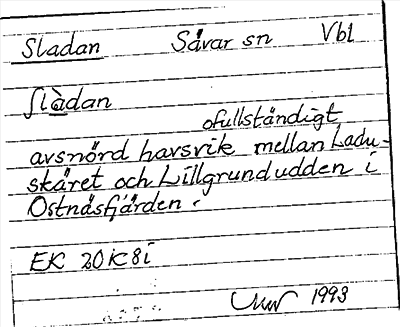 Sladan Sävar sn Vbl
slàdan
ofullständigt
avsnörd havsvik mellan Ladu-
skäret och Lillgrundudden i
Ostnäsfjärden.
EK 20K8i
1993